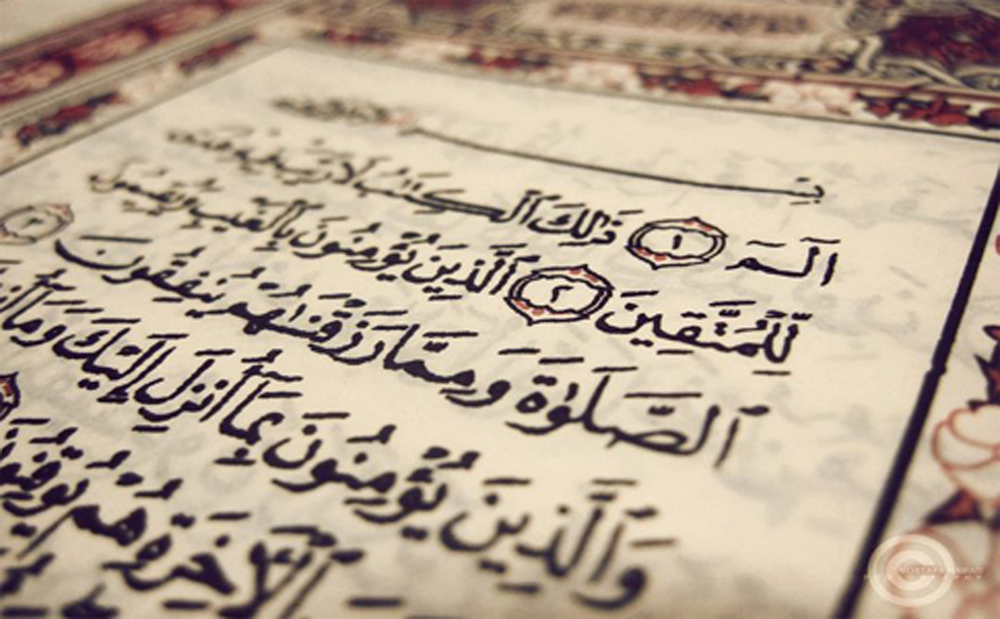 بِسْمِ
الٓمٓ ١ ذَٰلِكَ ٱلْكِتَٰبُ لَا رَيْبَ فِيهِ هُدًى
لِّلْمُتَّقِينَ ٢ ٱلَّذِينَ يُؤْمِنُونَ بِٱلْغَيْبِ وَيُقِيمُونَ
ٱلصَّلَوٰةَ وَمِمَّا رَزَقْنَٰهُمْ يُنفِقُونَ ٣
وَٱلَّذِينَ يُؤْمِنُونَ بِمَآ أُنزِلَ إِلَيْكَ وَمَآ
ٱلْأٓخِرَةِ هُمْ يُوقِنُونَ